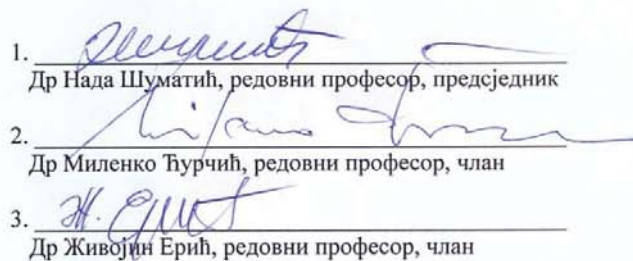 1.
Др Нада Шуматић, редовни професор, предсједник
2.
Др Миленко Ћурчић, редовни професор, члан
3. Ж. Ерић
Др Живојин Ерић, редовни професор, члан